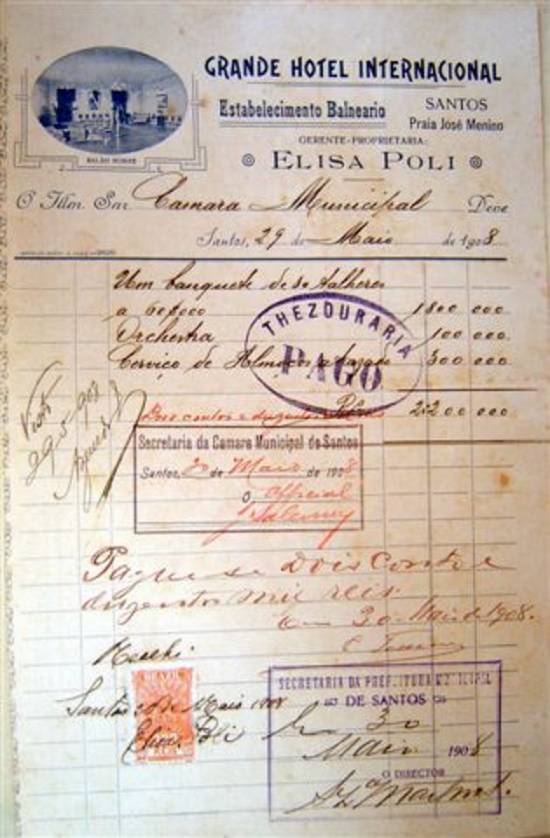 GRANDE HOTEL INTERNACIONAL
Estabelecimento Balneario
SANTOS
Praia José Menino
GERENTE-PROPRIETARIA:
ELISA POLI
SALÃO NOBRE
O Illm. Snr. Camara Municipal Deve
Santos, 29 de Maio de 1908
Um banquete de 30 talheres
a 60#000 1800 000
Orchestra 100 000
Serviço de Almoços 300 000
THEZOURARIA
PAGO
Dois contos e duzentos Réis 2:200 000
Visto
29-5-908
Secretaria da Camara Municipal de Santos
Santos, 30 de Maio de 1908
O Official
Pague se Dois Contos e
duzentos mil reis
em 30 Maio de 1908.
Recebi
Santos de Maio 1908
Elisa Poli
BRASIL
SECRETARIA DA PREFEITURA MUNICIPAL
DE SANTOS
Em 30
Maio 1908
O DIRECTOR